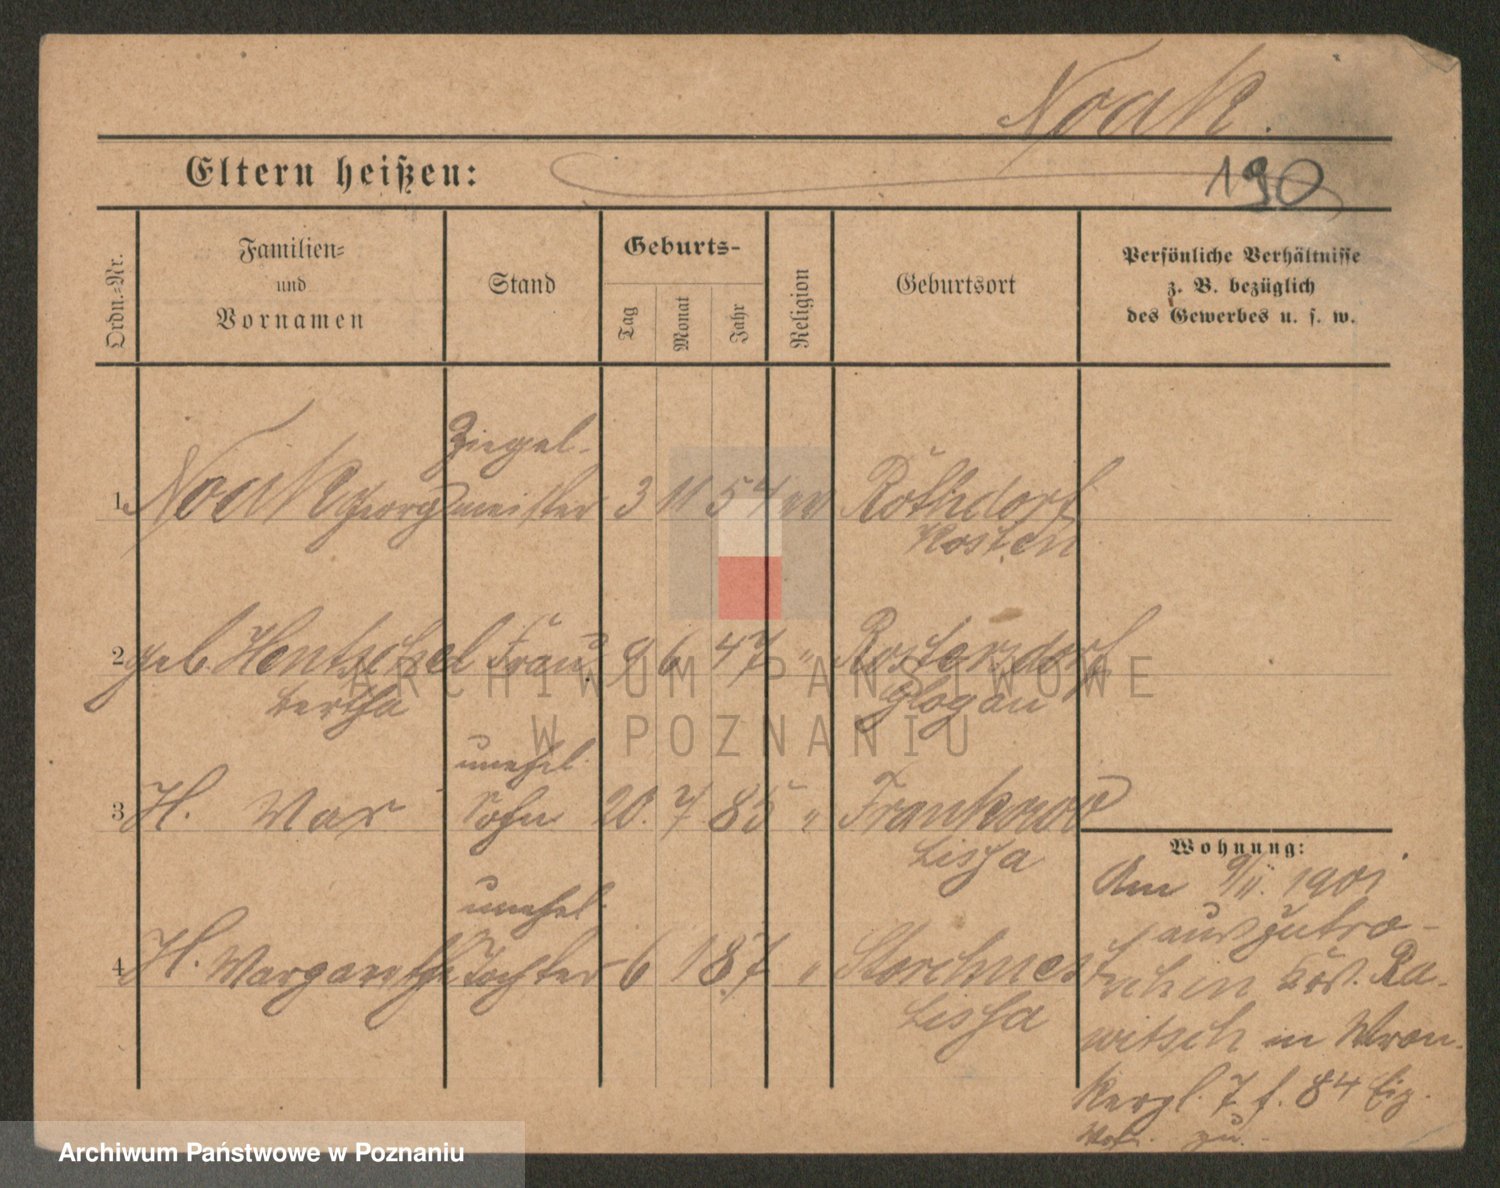 Noak.
Eltern heißen:
190
Ordn.-Nr.
Familien-
und
Vornamen
Stand
Geburts-
Tag
Monat
Jahr
Religion
Geburtsort
Persönliche Verhältnisse
z. B. bezüglich
des Gewerbes u. s. w.
Ziegel-
1 Noak Georg meister 3 11 54 Rothdorf
Kosten
2 geb. Hentschel Frau 9 6 47 "
Bertha Glogau
unehel.
3 H. Max Sohn 20. 7 85 " Frankowo
Lissa
Wohnung:
Am 9/11. 1901
unehel.
4 H. Margarethe Tochter 6 1 87 " Storchnest
Lissa
witsch in
ARCHIWUM PAŃSTWOWE
W POZNANIU
Archiwum Państwowe w Poznaniu